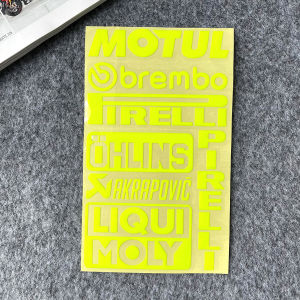 MOTUL
brembo
PIRELLI
ÖHLINS
AKRAPOVIČ
LIQUI
MOLY
PIRELLI